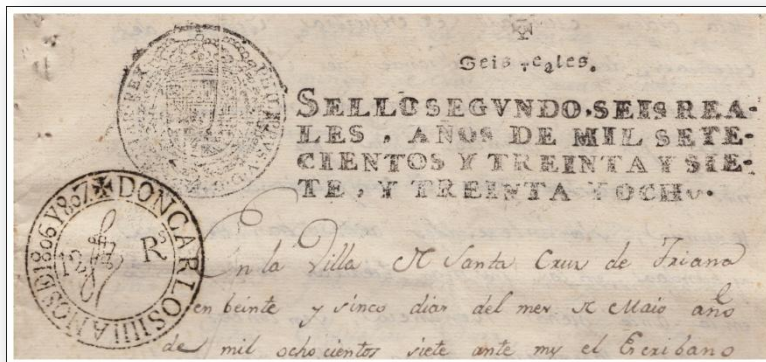 Seis reales.
SELLO SEGVNDO. SEIS REA-
LES, AÑOS DE MIL SETE-
CIENTOS Y TREINTA Y SIE-
TE, Y TREINTA Y OCHO.
DON CARLOS IIII AÑOS D 1806 Y 807
12 Rs
En la Villa de Santa Cruz de Triana
en beinte y sinco dias del mes de Maio año
de mil ochocientos siete ante my el Escribano